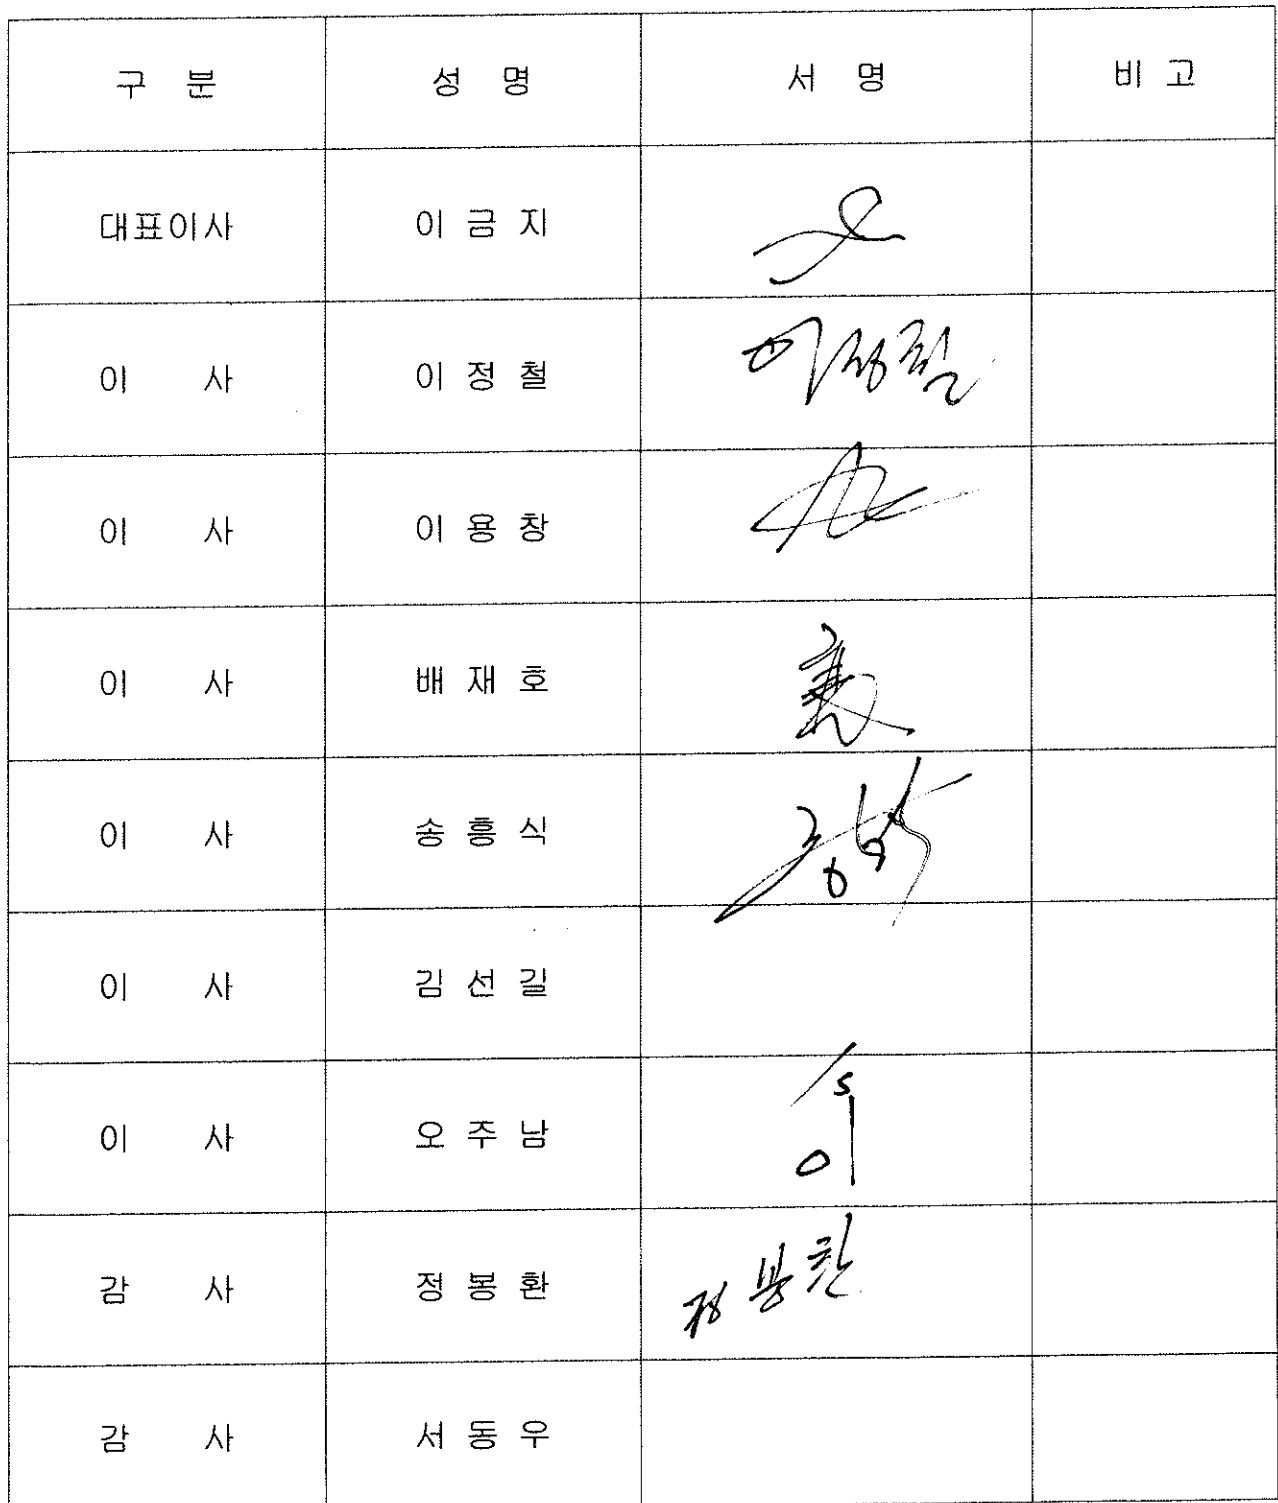 구 분 성 명 서 명 비 고
대표이사 이 금 지
이 사 이 정 철 이정철
이 사 이 용 창
이 사 배 재 호
이 사 송 흥 식
이 사 김 선 길
이 사 오 주 남
감 사 정 봉 환 정봉환
감 사 서 동 우